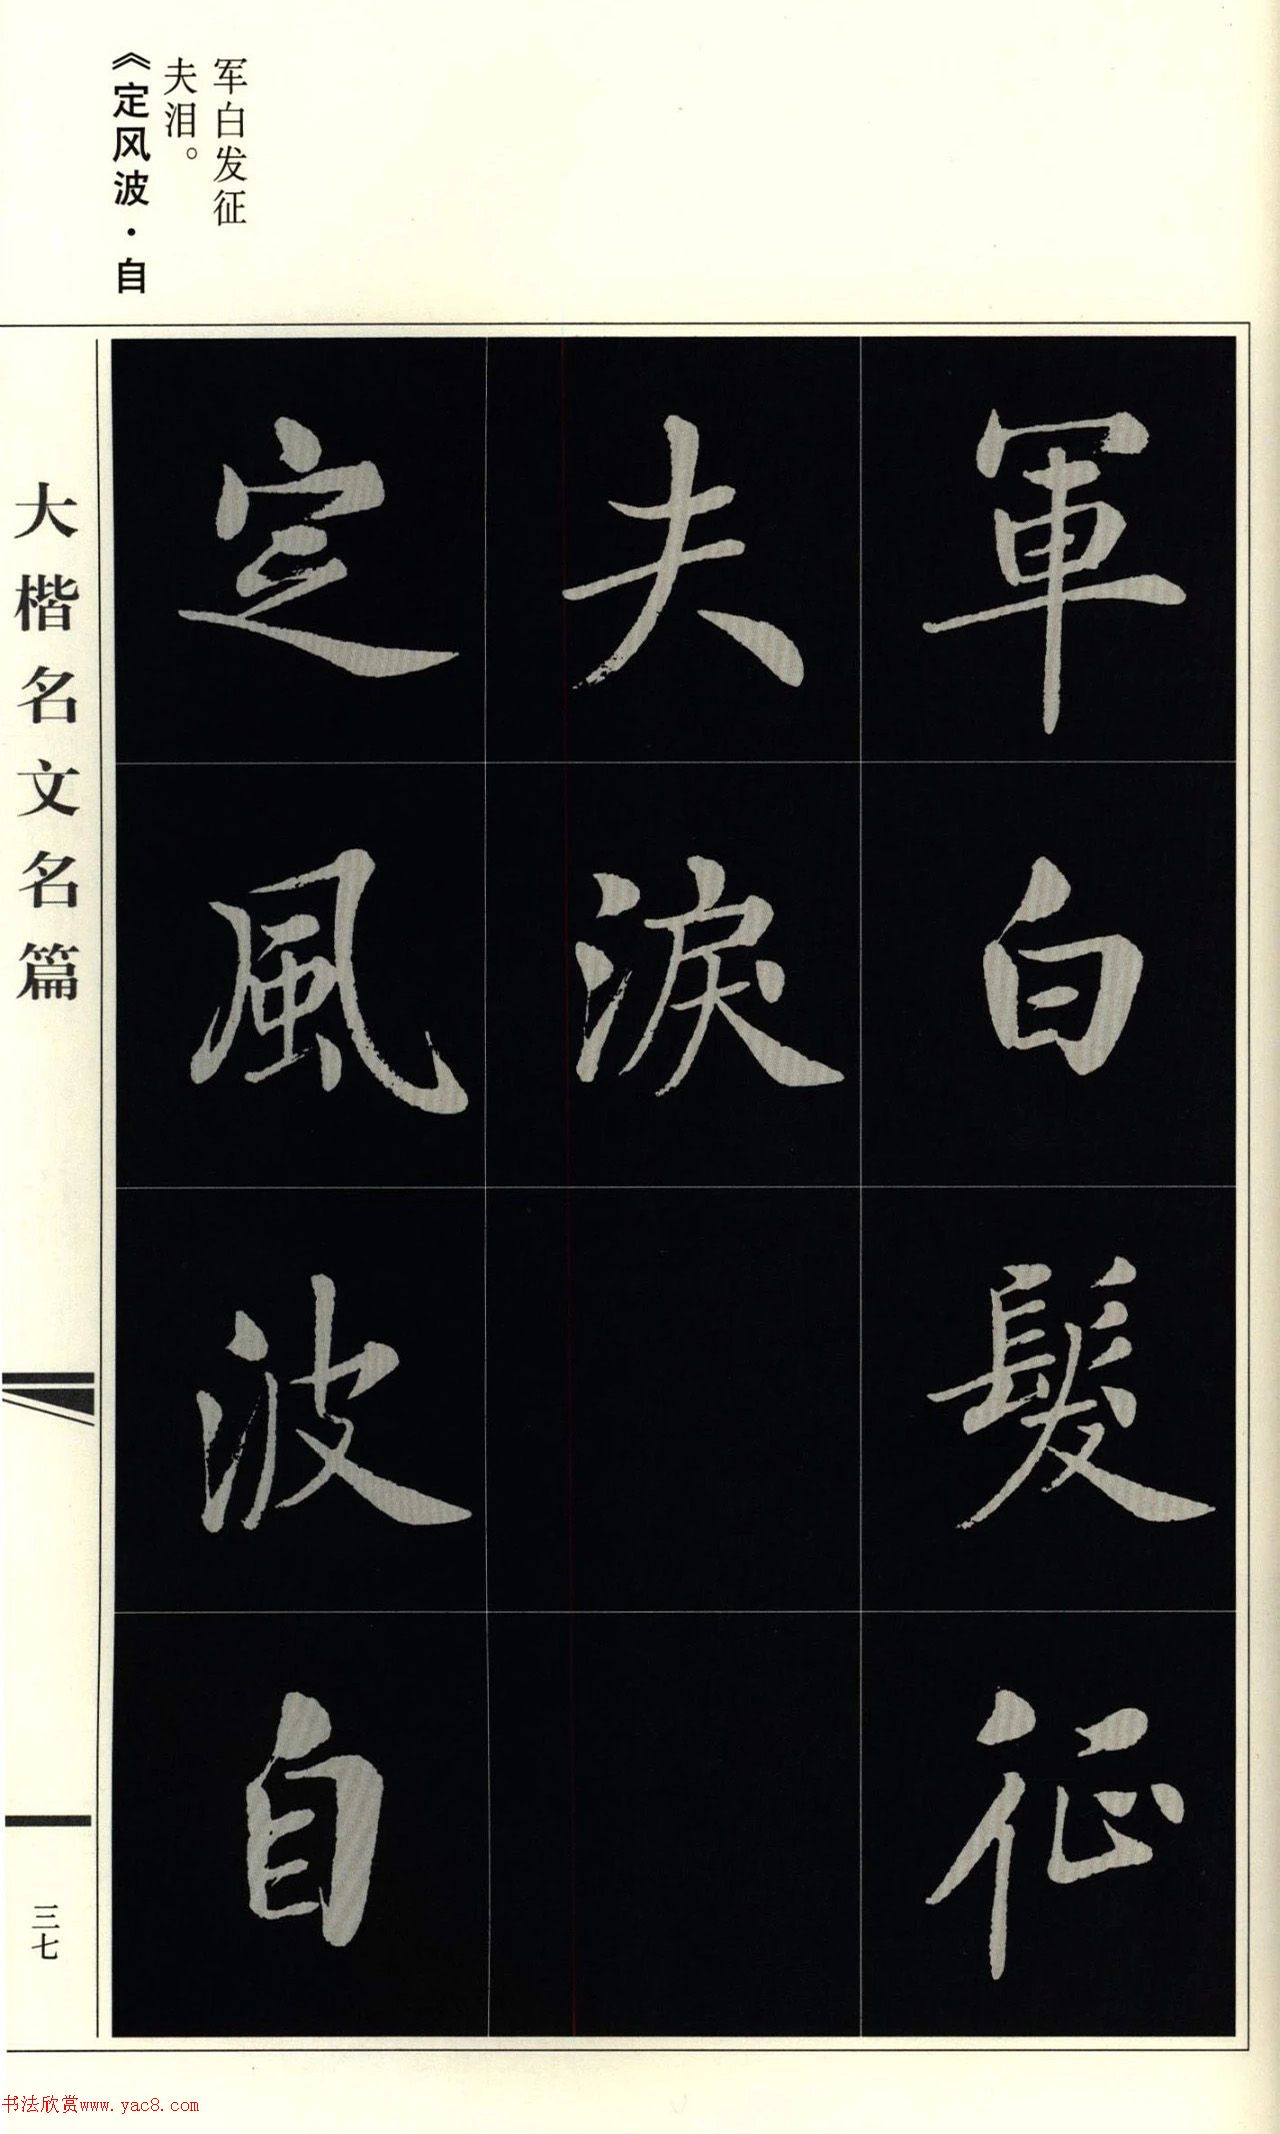 军白发征
夫泪。
《定风波·自
軍白髮征
夫淚
定風波自
大楷名文名篇
三七
书法欣赏www.yac8.com